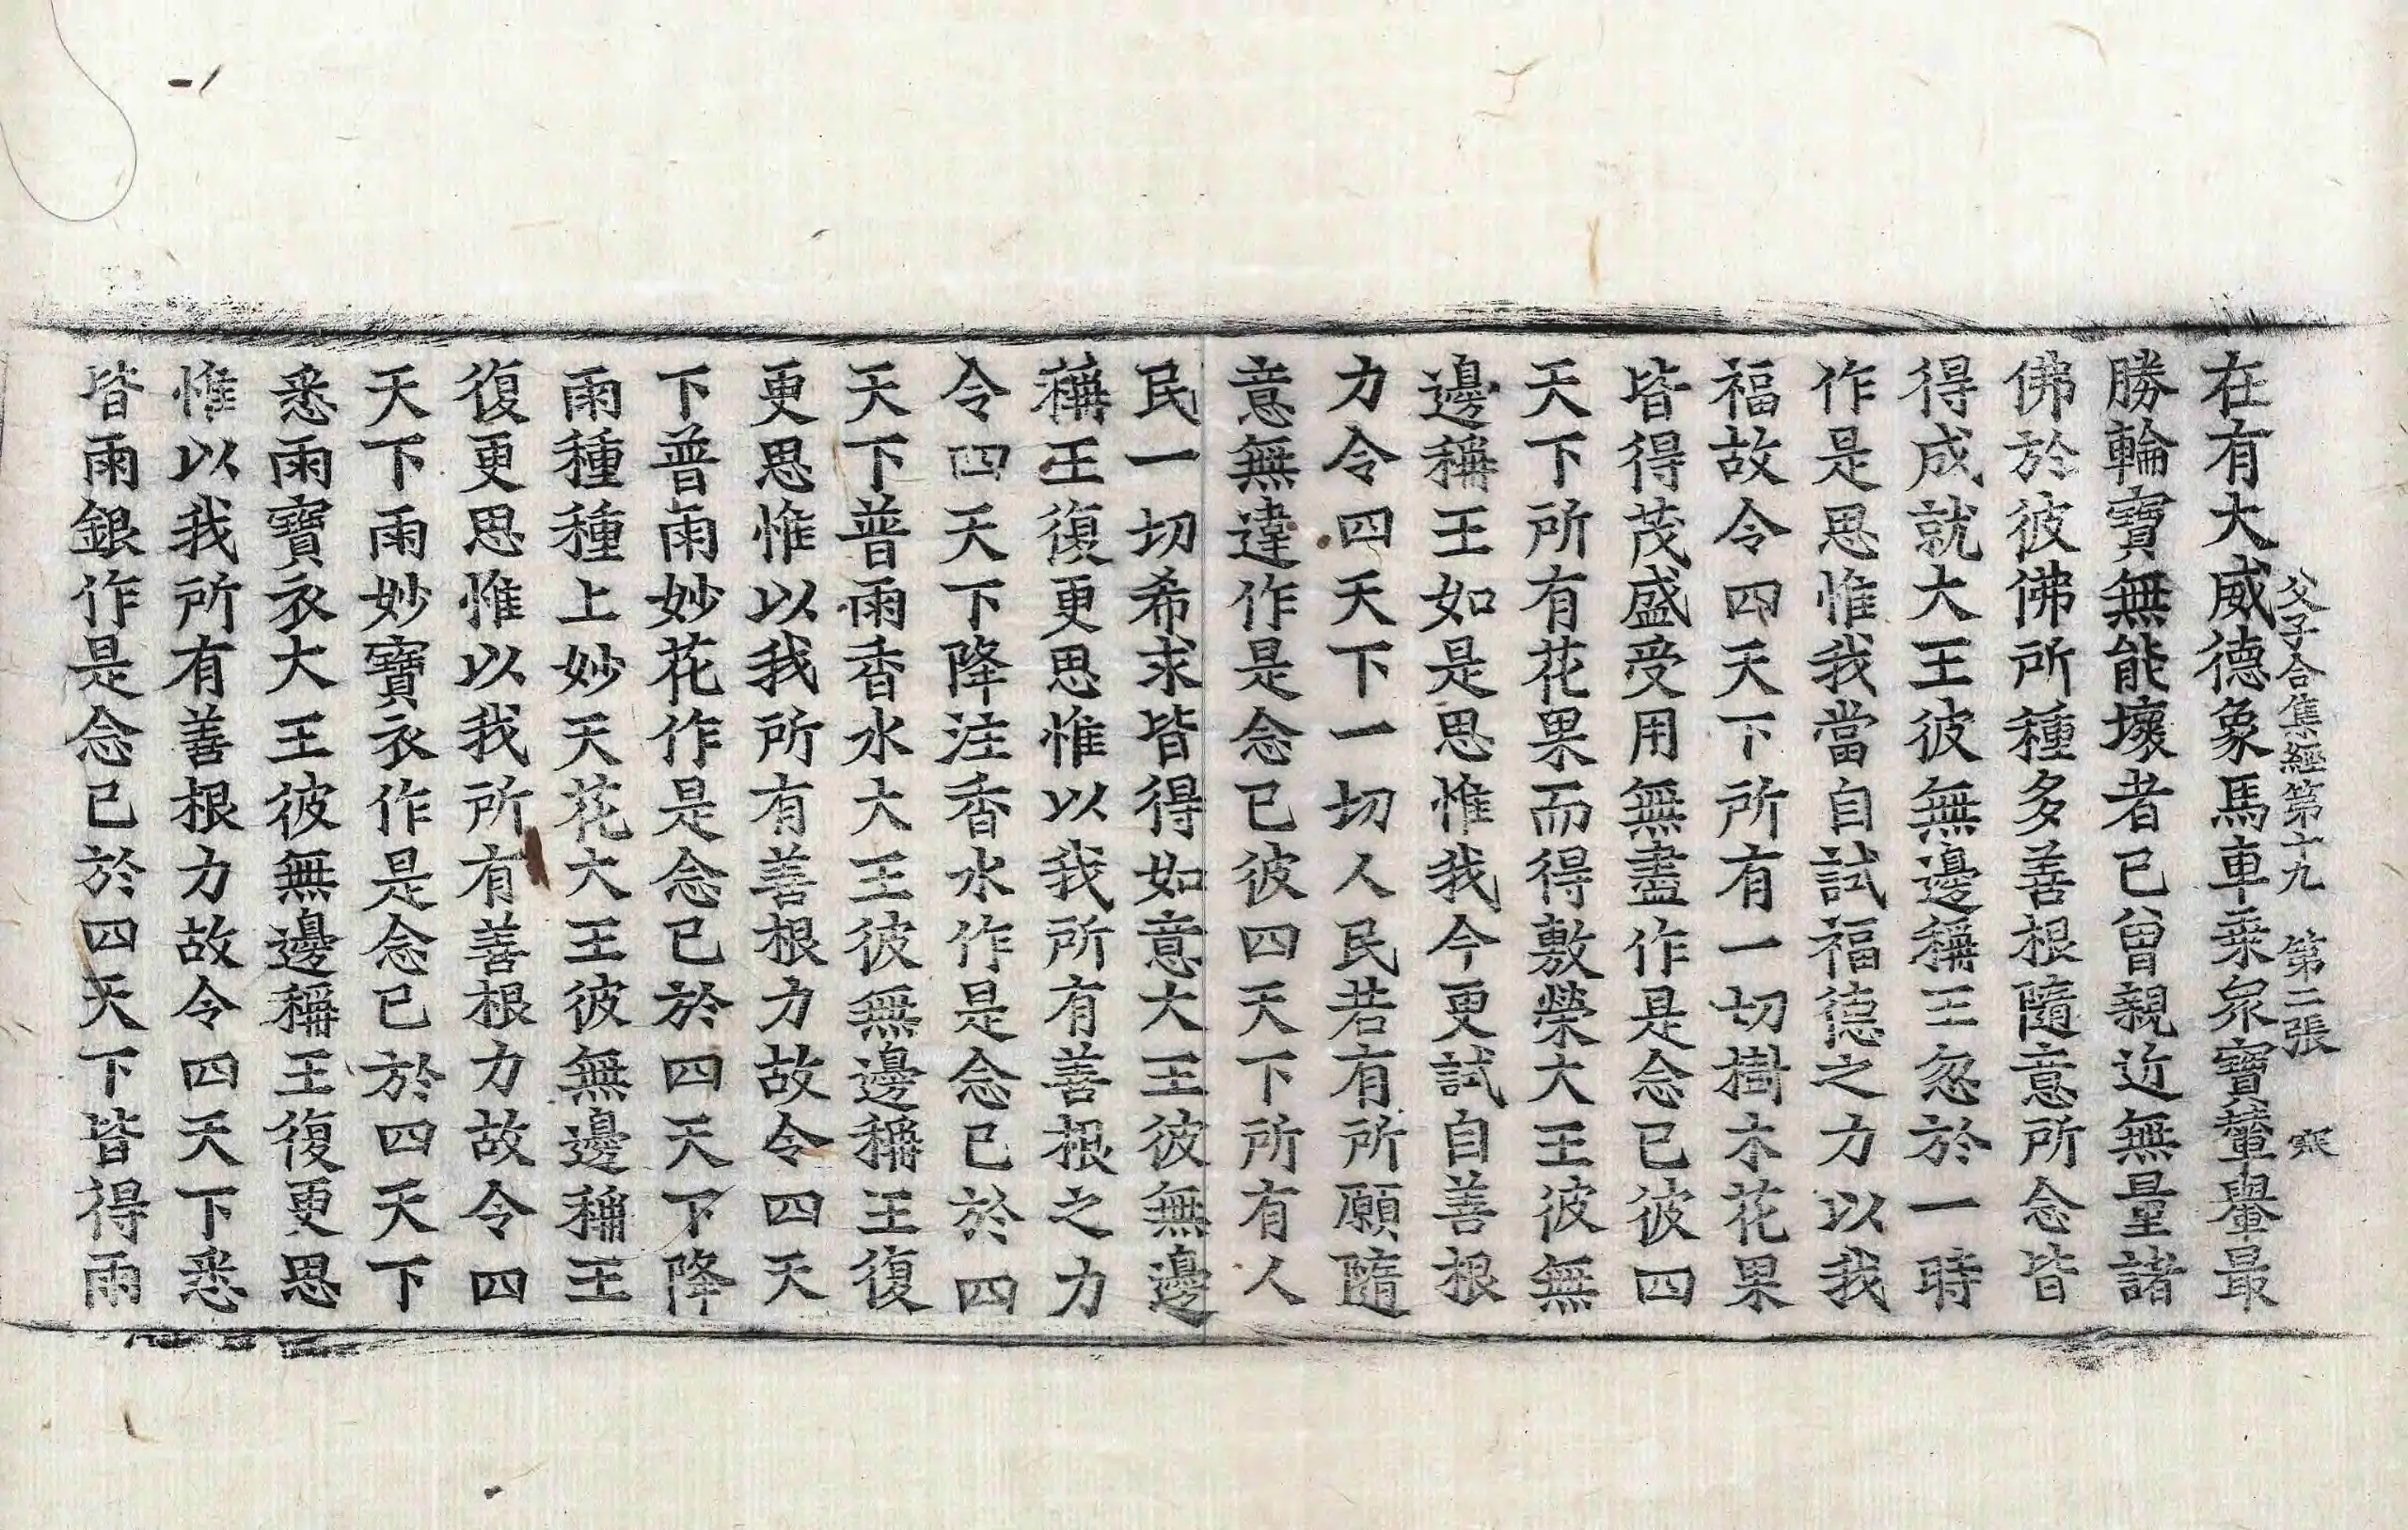 父子合集經第十九 第二張
在有大威德象馬車乘衆寶輦轝最
勝輪寶無能壞者已曾親近無量諸
佛於彼佛所種多善根隨意所念皆
得成就大王彼無邊稱王忽於一時
作是思惟我當自試福德之力以我
福故令四天下所有一切樹木花果
皆得茂盛受用無盡作是念已彼四
天下所有花果而得敷榮大王彼無
邊稱王如是思惟我今更試自善根
力令四天下一切人民若有所願隨
意無違作是念已彼四天下所有人
民一切希求皆得如意大王彼無邊
稱王復更思惟以我所有善根之力
令四天下降注香水作是念已於四
天下普雨香水大王彼無邊稱王復
更思惟以我所有善根力故令四天
下普雨妙花作是念已於四天下降
雨種種上妙天花大王彼無邊稱王
復更思惟以我所有善根力故令四
天下雨妙寶衣作是念已於四天下
悉雨寶衣大王彼無邊稱王復更思
惟以我所有善根力故令四天下悉
皆雨銀作是念已於四天下皆得雨